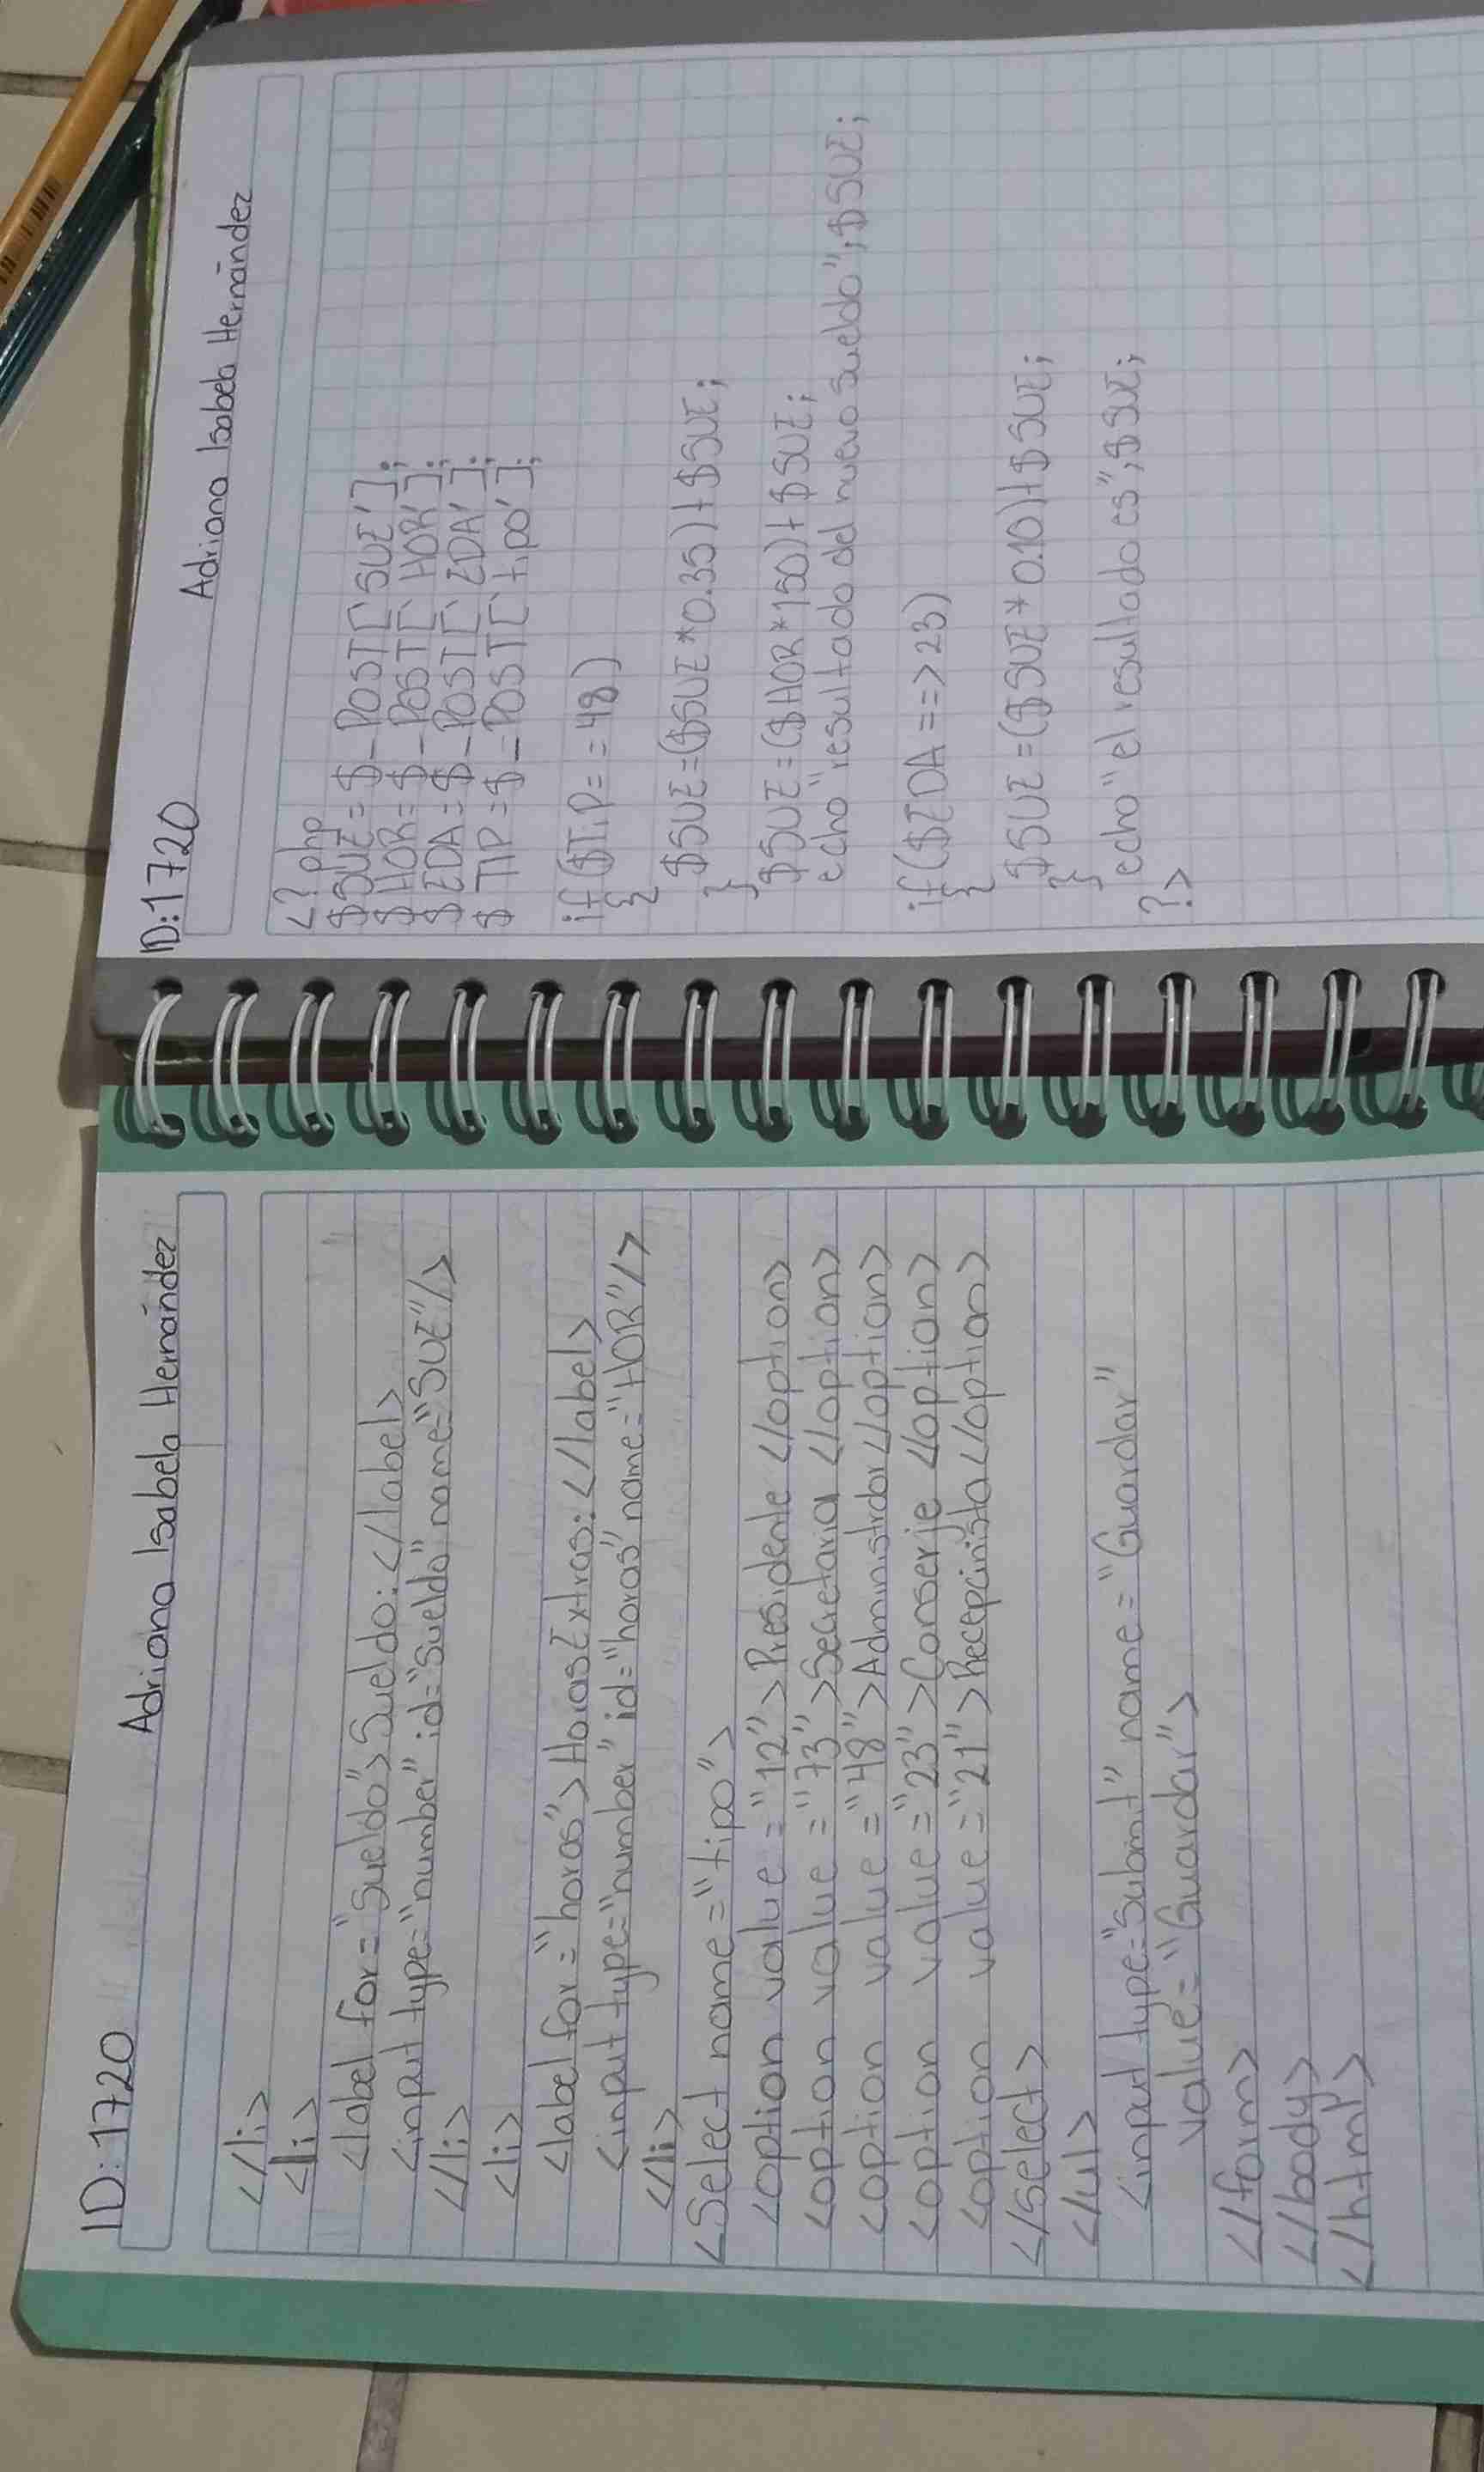 ID:1720 Adriana Isabela Hernández
</li>
<li>
<label for="Sueldo">Sueldo:</label>
<input type="number" id="Sueldo" name="SUE"/>
</li>
<li>
<label for="horas">Horas Extras:</label>
<input type="number" id="horas" name="HOR"/>
</li>
<Select name="tipo">
<option value="12">Presidente</option>
<option value="73">Secretaria</option>
<option value="48">Administrdor</option>
<option value="23">Conserje</option>
<option value="21">Recepcinista</option>
</select>
</ul>
<input type="submit" name="Guardar"
value="Guardar">
</form>
</body>
</html>
ID:1720 Adriana Isabela Hernández
<?php
$SUE=$_POST['SUE'];
$HOR=$_POST['HOR'];
$EDA=$_POST['EDA'];
$TIP=$_POST['tipo'];
if($TiP==48)
{
$SUE=($SUE*0.35)+$SUE;
}
$SUE=($HOR*150)+$SUE;
echo"resultado del nuevo sueldo",$SUE;
if($EDA==>23)
{
$SUE=($SUE*0.10)+$SUE;
}
echo"el resultado es",$SUE;
?>